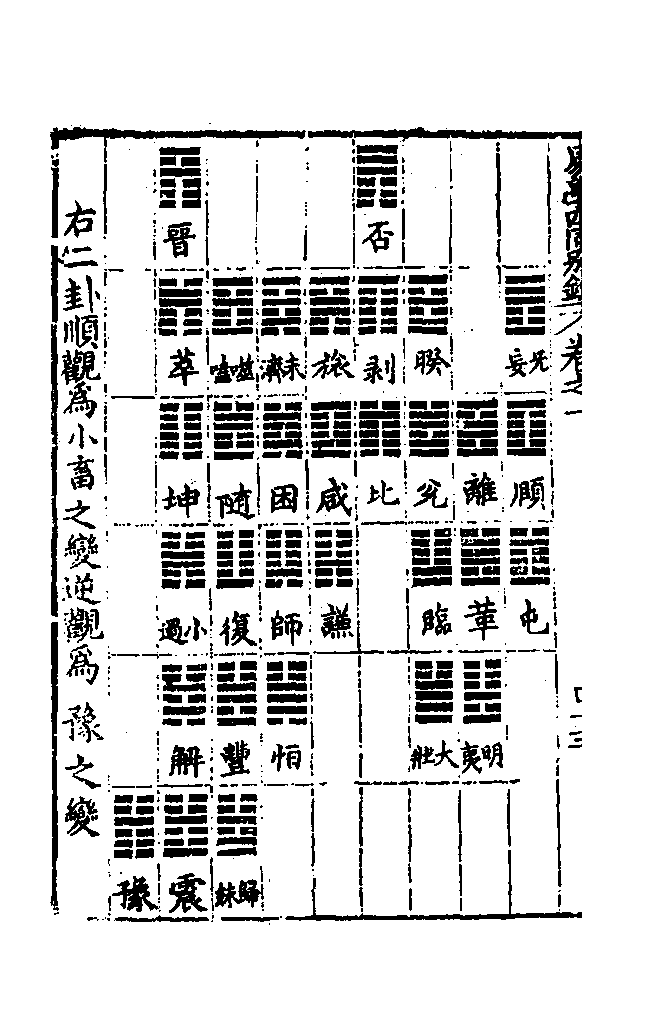 易學四同別錄 卷之一
四十三
否 晉
无妄 睽 剥 旅 未濟 噬嗑 萃
頤 離 兊 比 咸 困 随 坤
屯 革 臨 謙 師 復 小過
明夷 大壯 恒 豐 解
歸妹 震 豫
右二卦順觀為小畜之變逆觀為豫之變